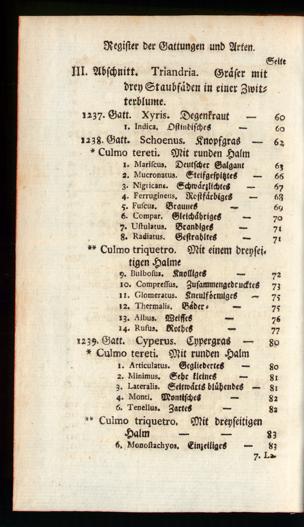 Register der Gattungen und Arten.
Seite
III. Abschnitt. Triandria. Gräser mit
drey Staubfäden in einer Zwit-
terblume.
1237. Gatt. Xyris. Degenkraut — 60
1. Indica. Ostindisches — 60
1238. Gatt. Schoenus. Knopfgras — 62
* Culmo tereti. Mit runden Halm
1. Mariscus. Deutscher Galgant 63
2. Mucronatus. Steifgespitztes — 66
3. Nigricans. Schwärzlichtes — 67
4. Ferrugineus. Rostfärbiges — 68
5. Fuscus. Braunes — 69
6. Compar. Gleichähriges — 70
7. Ustulatus. Brandiges — 71
8. Radiatus. Gestrahltes — 71
** Culmo triquetro. Mit einem dreysei-
tigen Halme
9. Bulbosus. Knolliges — 72
10. Compressus. Zusammengedrucktes 73
11. Glomeratus. Kneulförmiges — 75
12. Thermalis. Bäder- — 75
13. Albus. Weisses — 76
14. Rufus. Rothes — 77
1239. Gatt. Cyperus. Cypergras — 80
* Culmo tereti. Mit runden Halm
1. Articulatus. Gegliedertes — 80
2. Minimus. Sehr kleines — 81
3. Lateralis. Seitwärts blühendes — 81
4. Monti. Montisches — 82
6. Tenellus. Zartes — 82
** Culmo triquetro. Mit dreyseitigen
Halm — — 83
6. Monostachyos. Einzeiliges — 83
7. La-